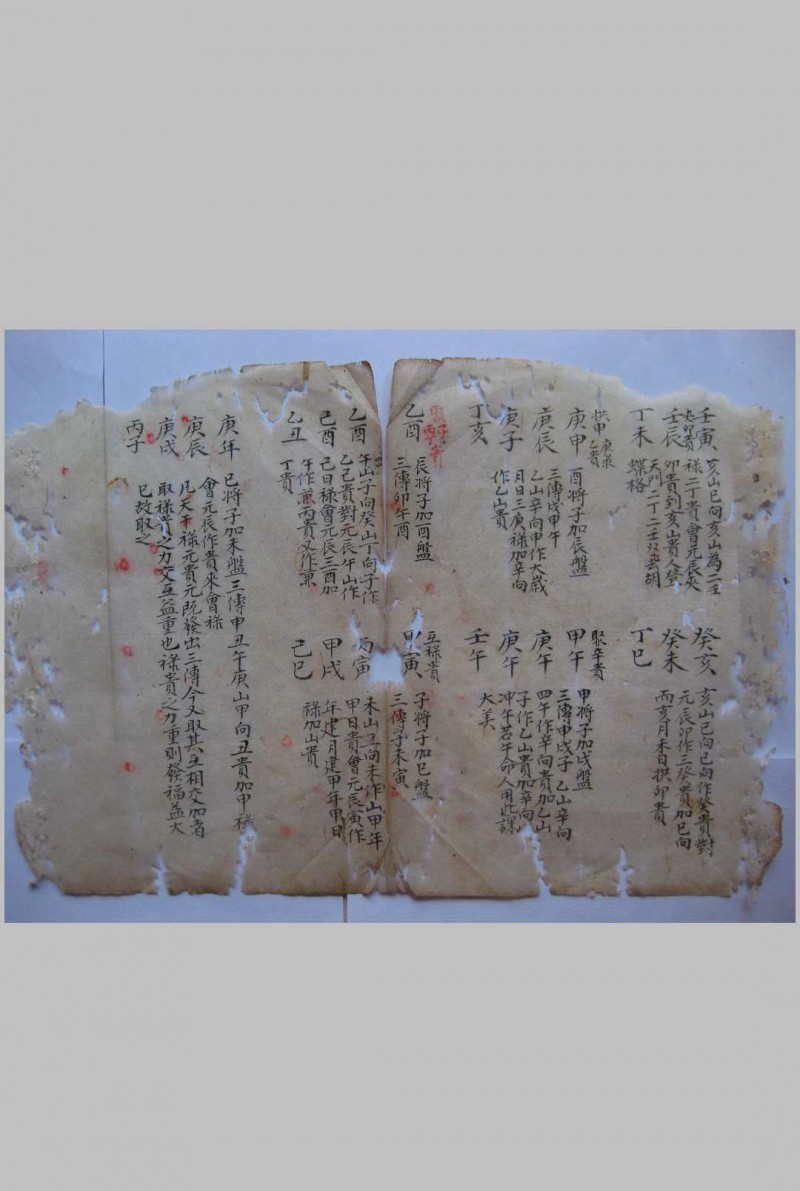 壬寅 亥山巳向亥山為二壬
夾卯貴
壬辰 祿二丁貴會元辰夾
卯貴到亥山貴人登
丁未 天門二丁二壬双飛胡
蝶格
癸亥 亥山巳向巳向作癸貴對
癸未 元辰卯作三癸貴加巳向
丁巳 兩亥月未日拱卯貴
拱申庚祿
乙貴
庚申 酉將子加辰盤
三傳戌甲午
庚辰 乙山辛向甲作大歲
庚子 月日三庚祿加辛向
作乙山貴
丁亥
聚辛貴
甲午 申將子加戌盤
三傳甲戌子 乙山辛向
庚午 四午作辛向貴加乙山
庚午 子作乙山貴加辛向
冲午若午命人用此課
壬午 大美
乙酉 辰將子加酉盤
三傳卯午酉
乙酉 午山子向癸山丁向子作
乙己貴對元辰午山作
己酉 己日祿會元辰三酉加
午作兼丙貴又作兼
乙丑 丁貴
互祿貴
甲寅 子將子加巳盤
三傳子未寅
丙寅 未山丑向未作山甲年
甲日貴會元辰寅作
甲戌 年建月建甲年甲日
祿加山貴
己巳
庚年 巳將子加未盤三傳申丑午庚山甲向丑貴加甲祿
會元辰作貴來會祿
庚辰 凡天干祿元貴元既發出三傳今又取其互相交加者
庚戌 取祿貴之力交互益重也祿貴之力重則發福益大
丙子 巳故取之